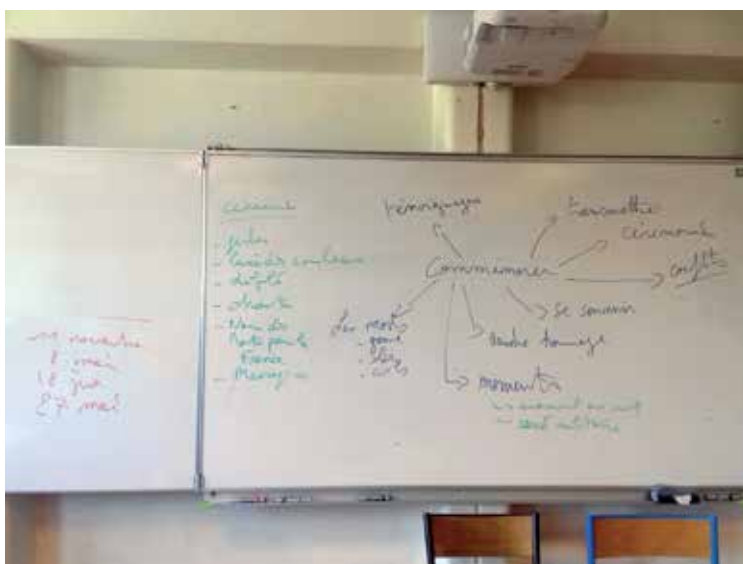 11 novembre
8 mai
18 juin
27 mai
cérémonie
- gerbes
- levée des couleurs
- dépôt
- Nom des
Morts pour la
France
- Message
témoignages
transmettre
cérémonie
Commémorer
conflits
se souvenir
rendre hommage
Les morts
moments
monument aux morts
carré militaire